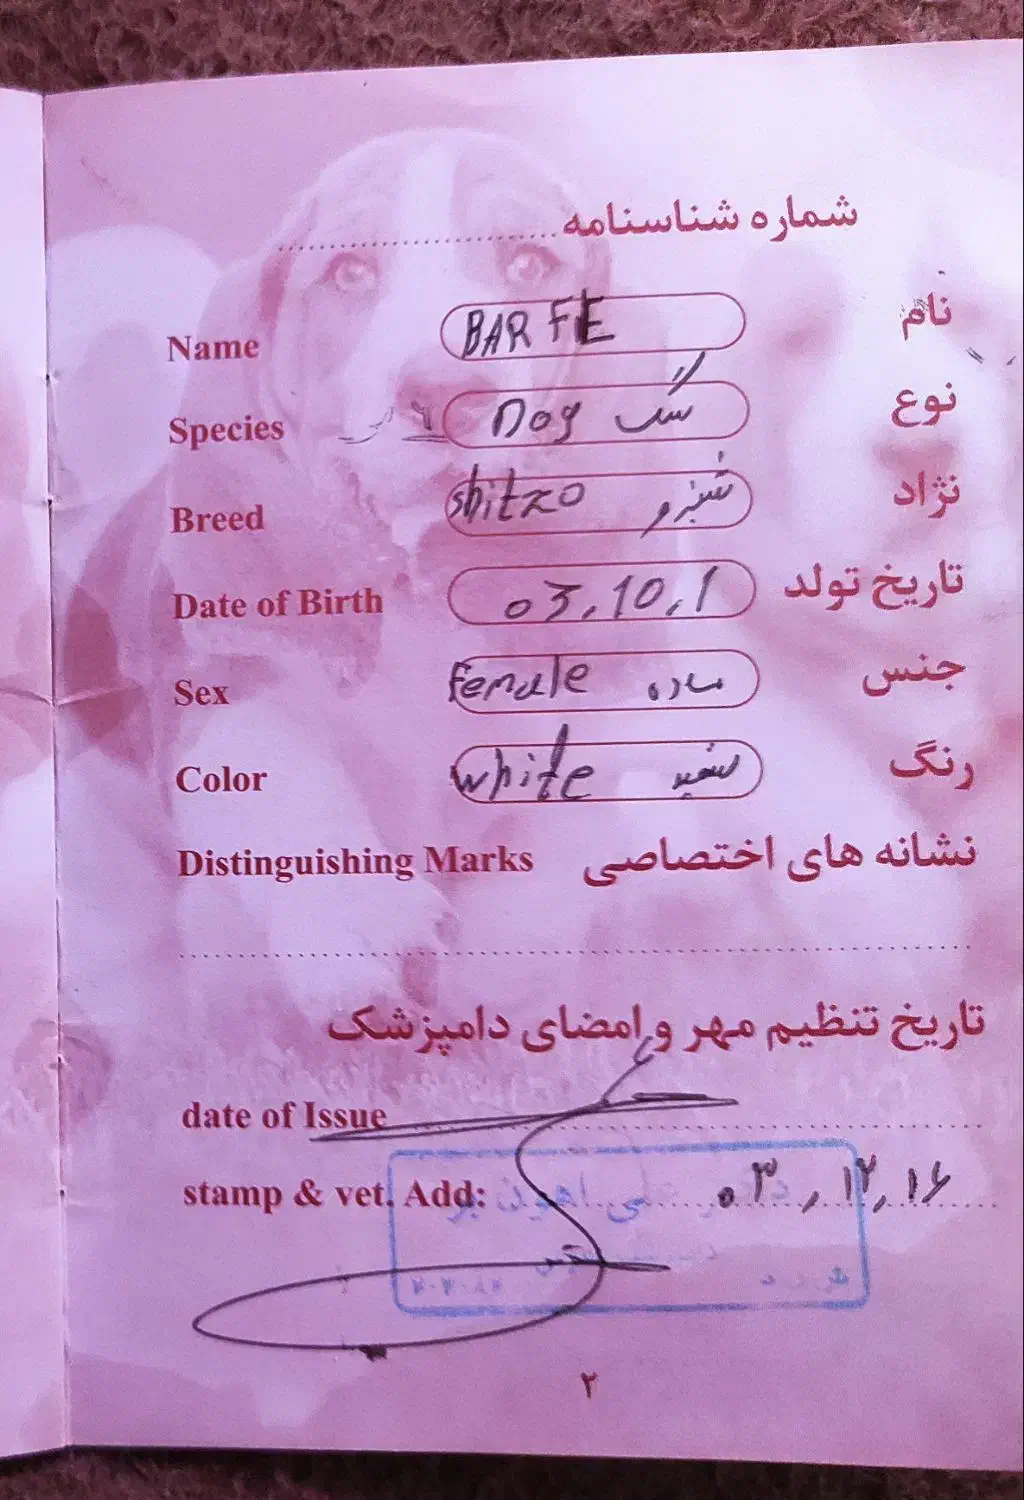 شماره شناسنامه
Name BARFIE نام
Species Dog سگ نوع
Breed shitzo شیتزو نژاد
Date of Birth 03,10,1 تاریخ تولد
Sex Female ماده جنس
Color white سفید رنگ
Distinguishing Marks نشانه های اختصاصی
تاریخ تنظیم مهر و امضای دامپزشک
date of Issue
stamp & vet. Add: ۰۳,۱۲,۱۶
۲